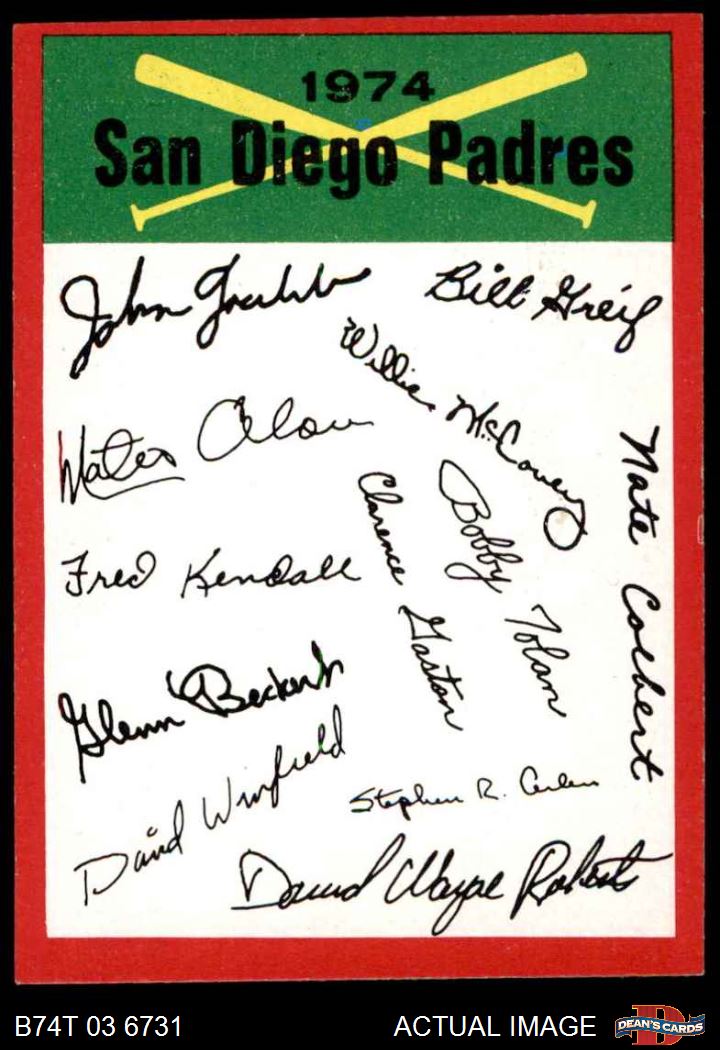 1974
San Diego Padres
John Grubb
Bill Greif
Willie McCovey
Mateo Alou
Nate Colbert
Clarence Gaston
Bobby Tolan
Fred Kendall
Glenn Beckert
David Winfield
Stephen R. Arlin
David Wayne Roberts
B74T 03 6731
ACTUAL IMAGE
D
DEAN'S CARDS